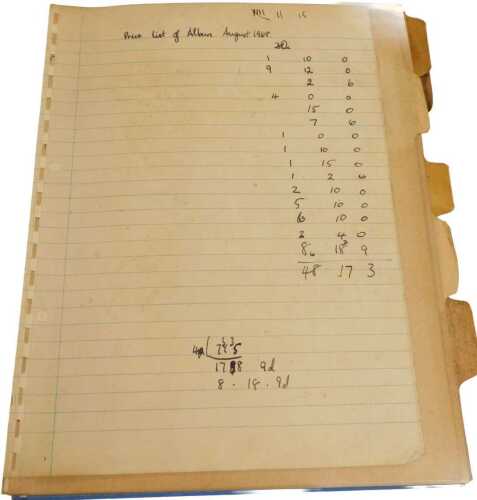 11 15
Price list of Album August 1968
1 10 0
9 12 0
2 6
4 0 0
15 0
7 6
1 0 0
1 10 0
1 15 0
1 2 6
2 10 0
5 10 0
6 10 0
2 4 0
8 18 9
48 17 3
178 9d
8 . 18 . 9d